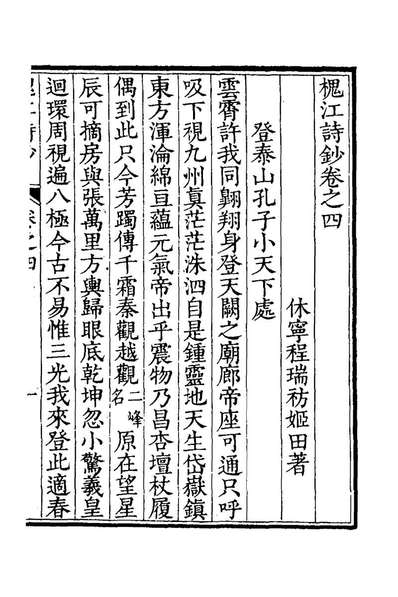 槐江詩鈔卷之四
休寧程瑞祊姬田著
登泰山孔子小天下處
雲霄許我同翺翔身登天闕之廟廊帝座可通只呼
吸下視九州眞茫茫洙泗自是鍾靈地天生岱嶽鎮
東方渾淪綿亘蘊元氣帝出乎震物乃昌杏壇杖履
偶到此只今芳躅傳千霜秦觀越觀二峰名原在望星
辰可摘房與張萬里方輿歸眼底乾坤忽小驚羲皇
迴環周視遍八極今古不易惟三光我來登此適春
卷之四
一